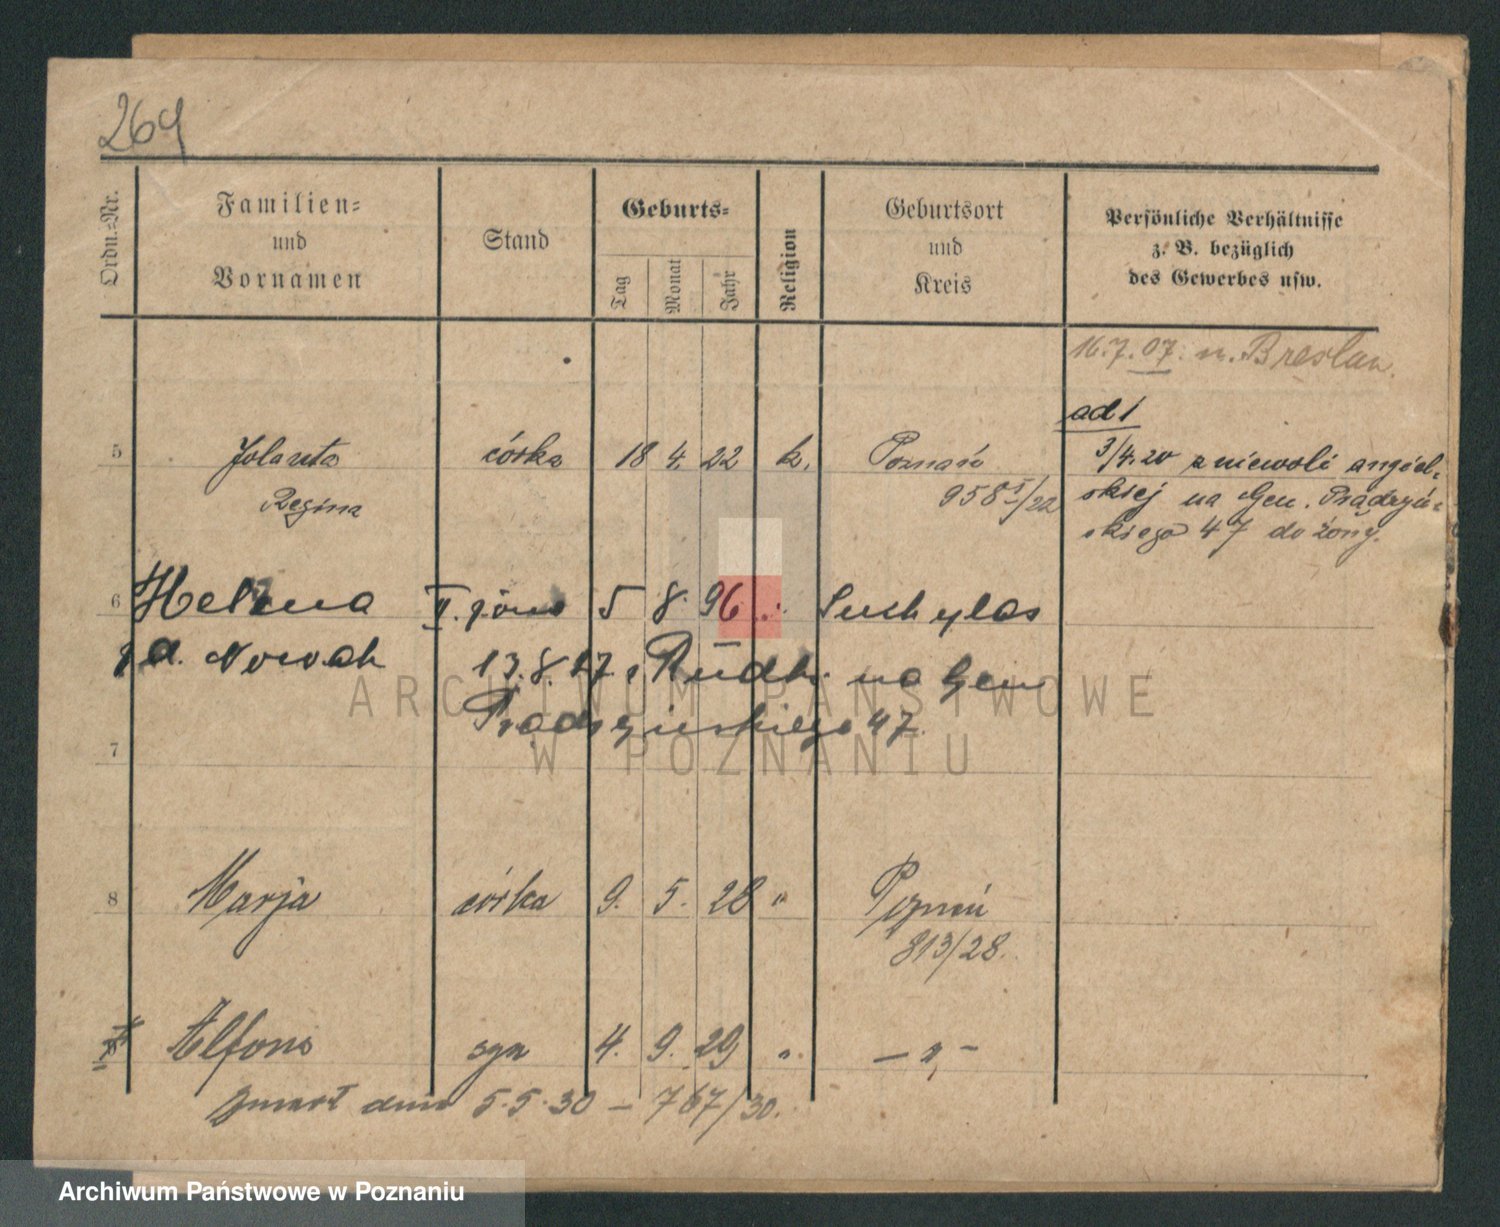 269
Ordn.-Nr.
Familien-
und
Vornamen
Stand
Geburts-
Tag
Monat
Jahr
Religion
Geburtsort
und
Kreis
Persönliche Verhältnisse
z. B. bezüglich
des Gewerbes usw.
16.7.07. n. Breslau.
ad 1
5 Jolanta córka 18 4. 22 k. Poznań 3/4.20 z niewoli angiel-
Regina 958 I/22 skiej na Gen. Prądzyń-
skiego 47 do żony.
6 Helena II. żona 5 8. 96 Suchylas
Nowak 13.8.27 na Gen
Prądzyńskiego 47
7
8 Marja córka 9. 5. 28 " Poznań
813/28.
Alfons syn 4. 9. 29 " — " —
zmarł dnia 5.5.30 — 767/30.
ARCHIWUM PAŃSTWOWE
W POZNANIU
Archiwum Państwowe w Poznaniu